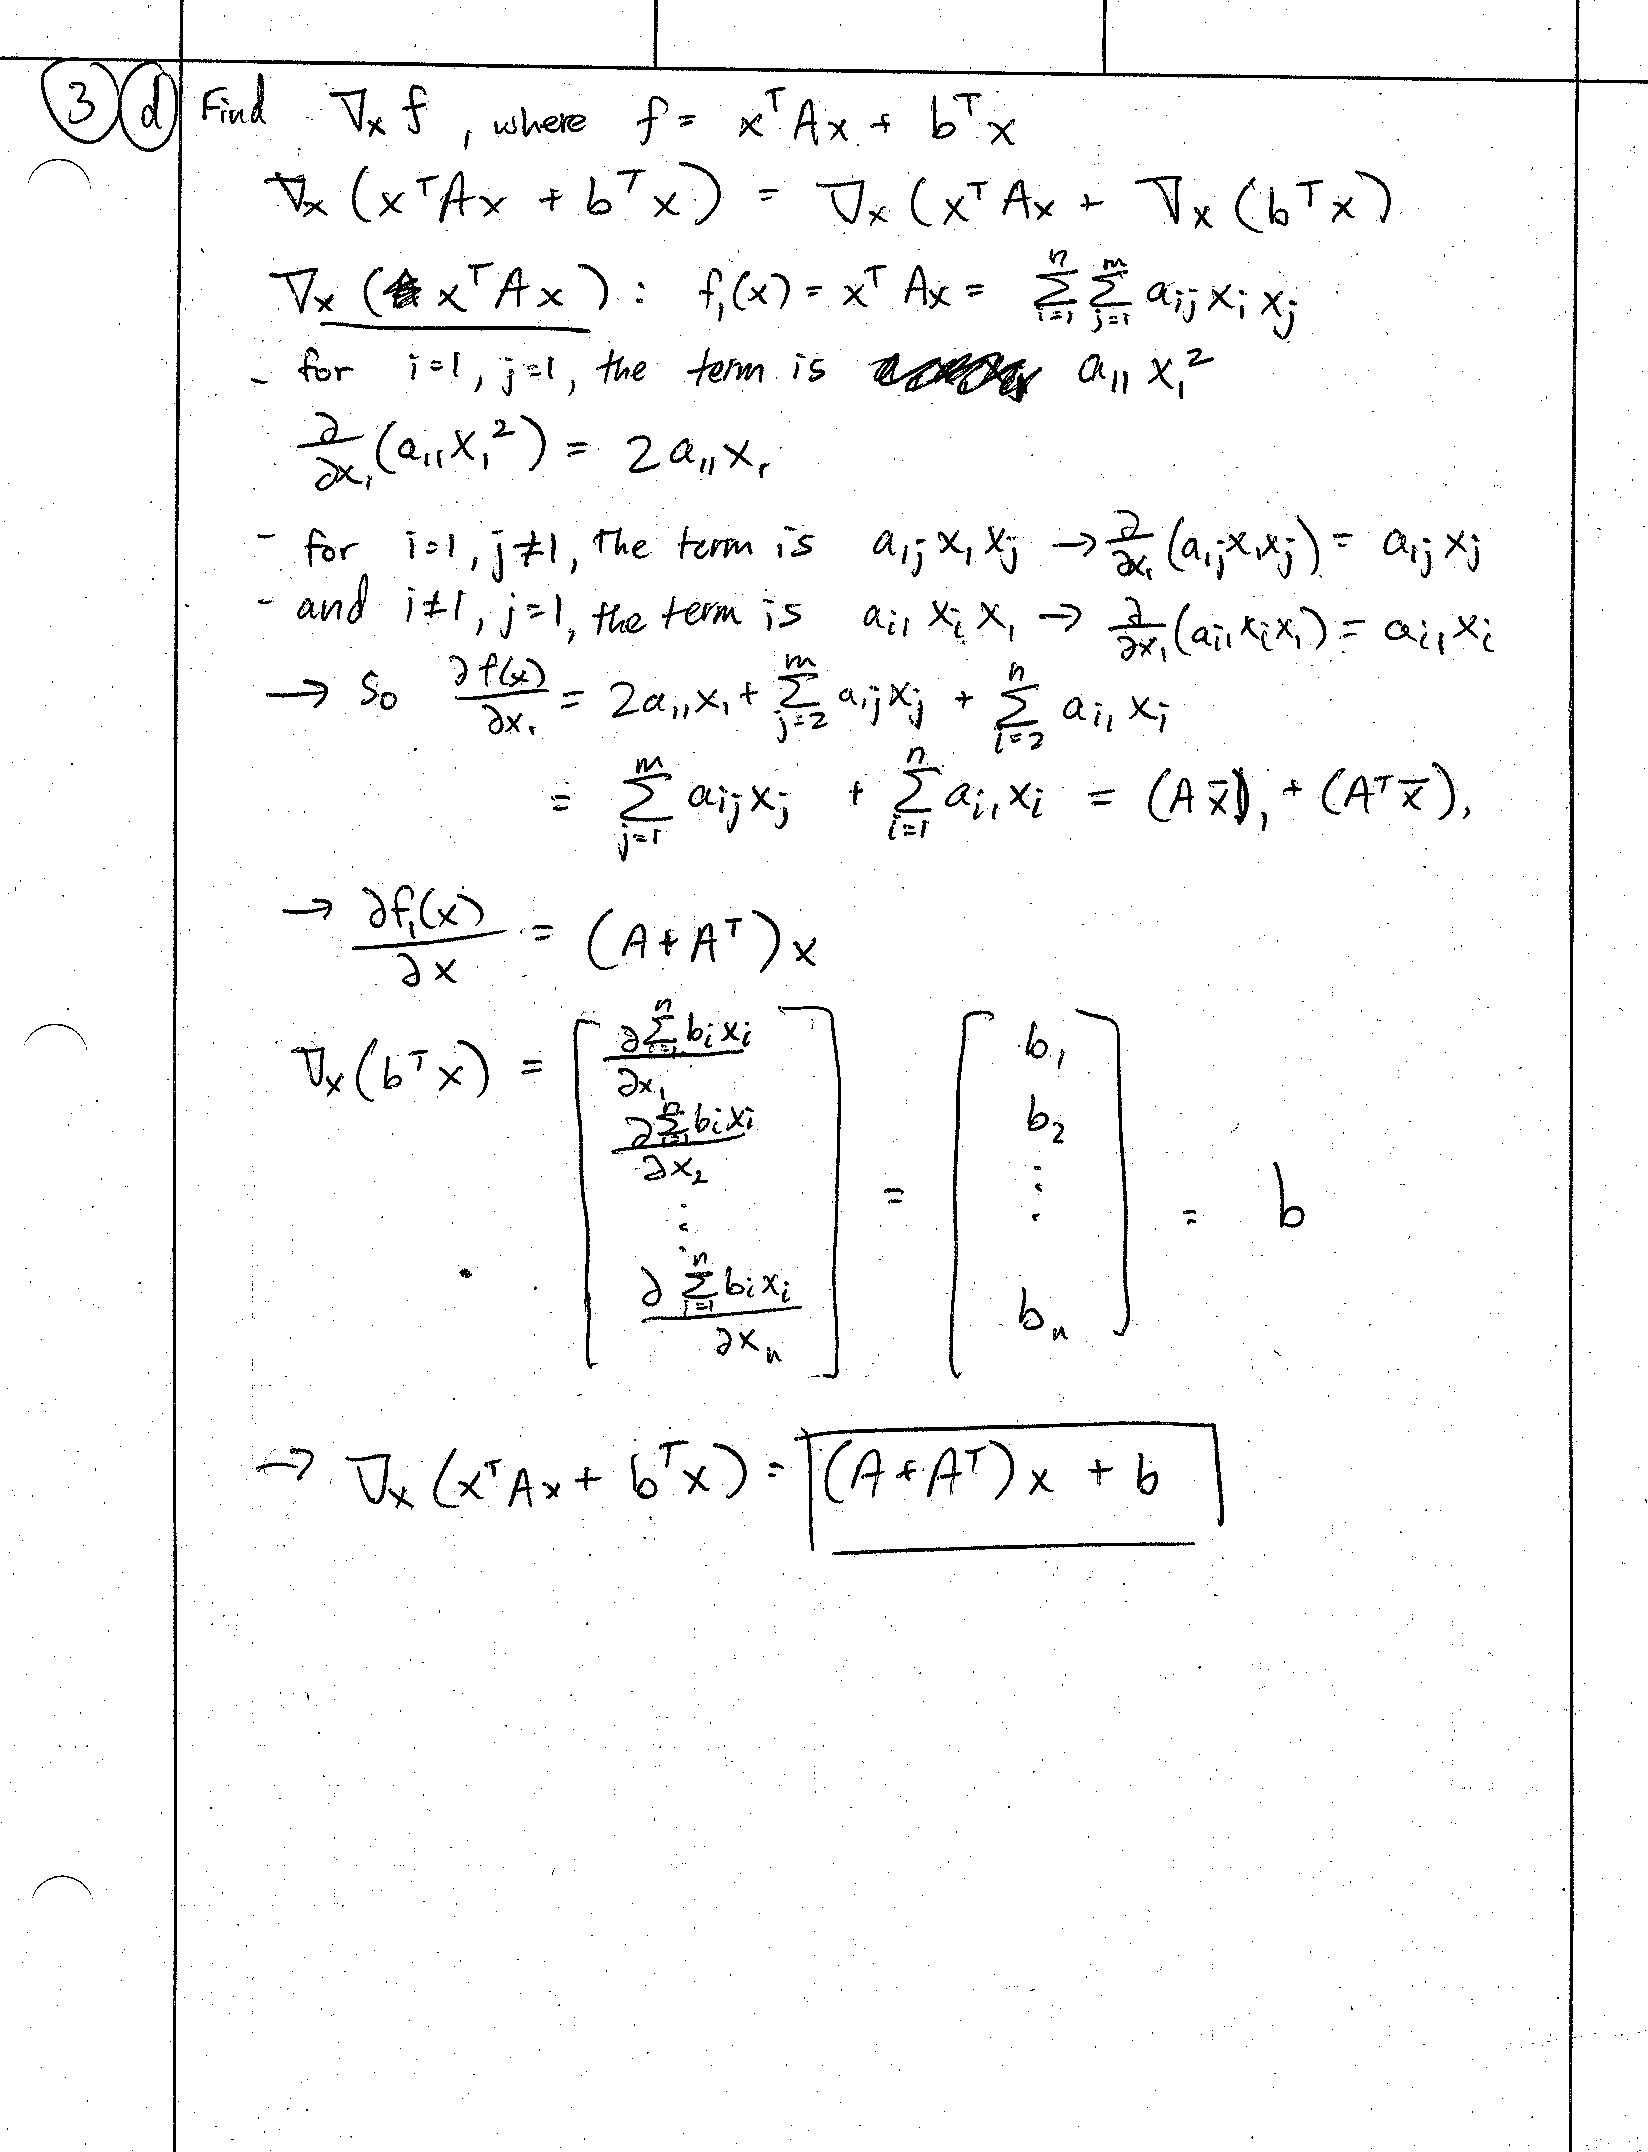 3 d Find ∇ₓ f , where f = xᵀAx + bᵀx
∇ₓ (xᵀAx + bᵀx) = ∇ₓ (xᵀAx + ∇ₓ (bᵀx)
∇ₓ (xᵀAx) : f₁(x) = xᵀAx = Σᵢ₌₁ⁿ Σⱼ₌₁ᵐ aᵢⱼ xᵢ xⱼ
- for i=1, j=1, the term is a₁₁ x₁²
∂/∂x₁ (a₁₁x₁²) = 2a₁₁x₁
- for i=1, j≠1, the term is a₁ⱼ x₁ xⱼ → ∂/∂x₁ (a₁ⱼx₁xⱼ) = a₁ⱼ xⱼ
- and i≠1, j=1, the term is aᵢ₁ xᵢ x₁ → ∂/∂x₁ (aᵢ₁xᵢx₁) = aᵢ₁xᵢ
→ So ∂f(x)/∂x₁ = 2a₁₁x₁ + Σⱼ₌₂ᵐ a₁ⱼxⱼ + Σᵢ₌₂ⁿ aᵢ₁ xᵢ
= Σⱼ₌₁ᵐ a₁ⱼxⱼ + Σᵢ₌₁ⁿ aᵢ₁xᵢ = (Ax̄)₁ + (Aᵀx̄)₁
→ ∂f₁(x)/∂x = (A+Aᵀ)x
∇ₓ(bᵀx) = [ ∂Σᵢ₌₁ⁿ bᵢxᵢ/∂x₁
∂Σᵢ₌₁ⁿ bᵢxᵢ/∂x₂
⋮
∂Σᵢ₌₁ⁿ bᵢxᵢ/∂xₙ ] = [ b₁
b₂
⋮
bₙ ] = b
→ ∇ₓ (xᵀAx + bᵀx) = (A+Aᵀ)x + b